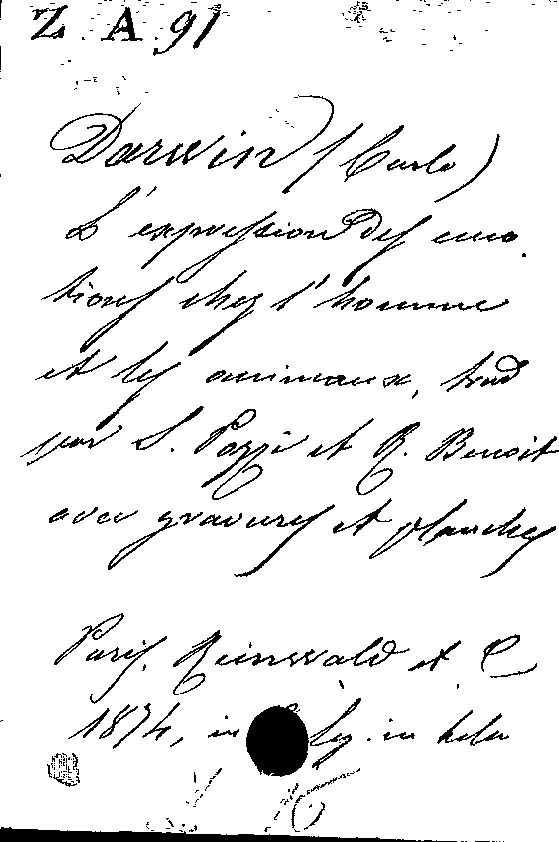 Z. A. 91
Darwin (Carlo)
L'expression des emo
tions chez l'homme
et les animaux, trad
par S. Pozzi et R. Benoit
avec gravures et planches
Paris. Reinwald et C
1874, in leg. in tela